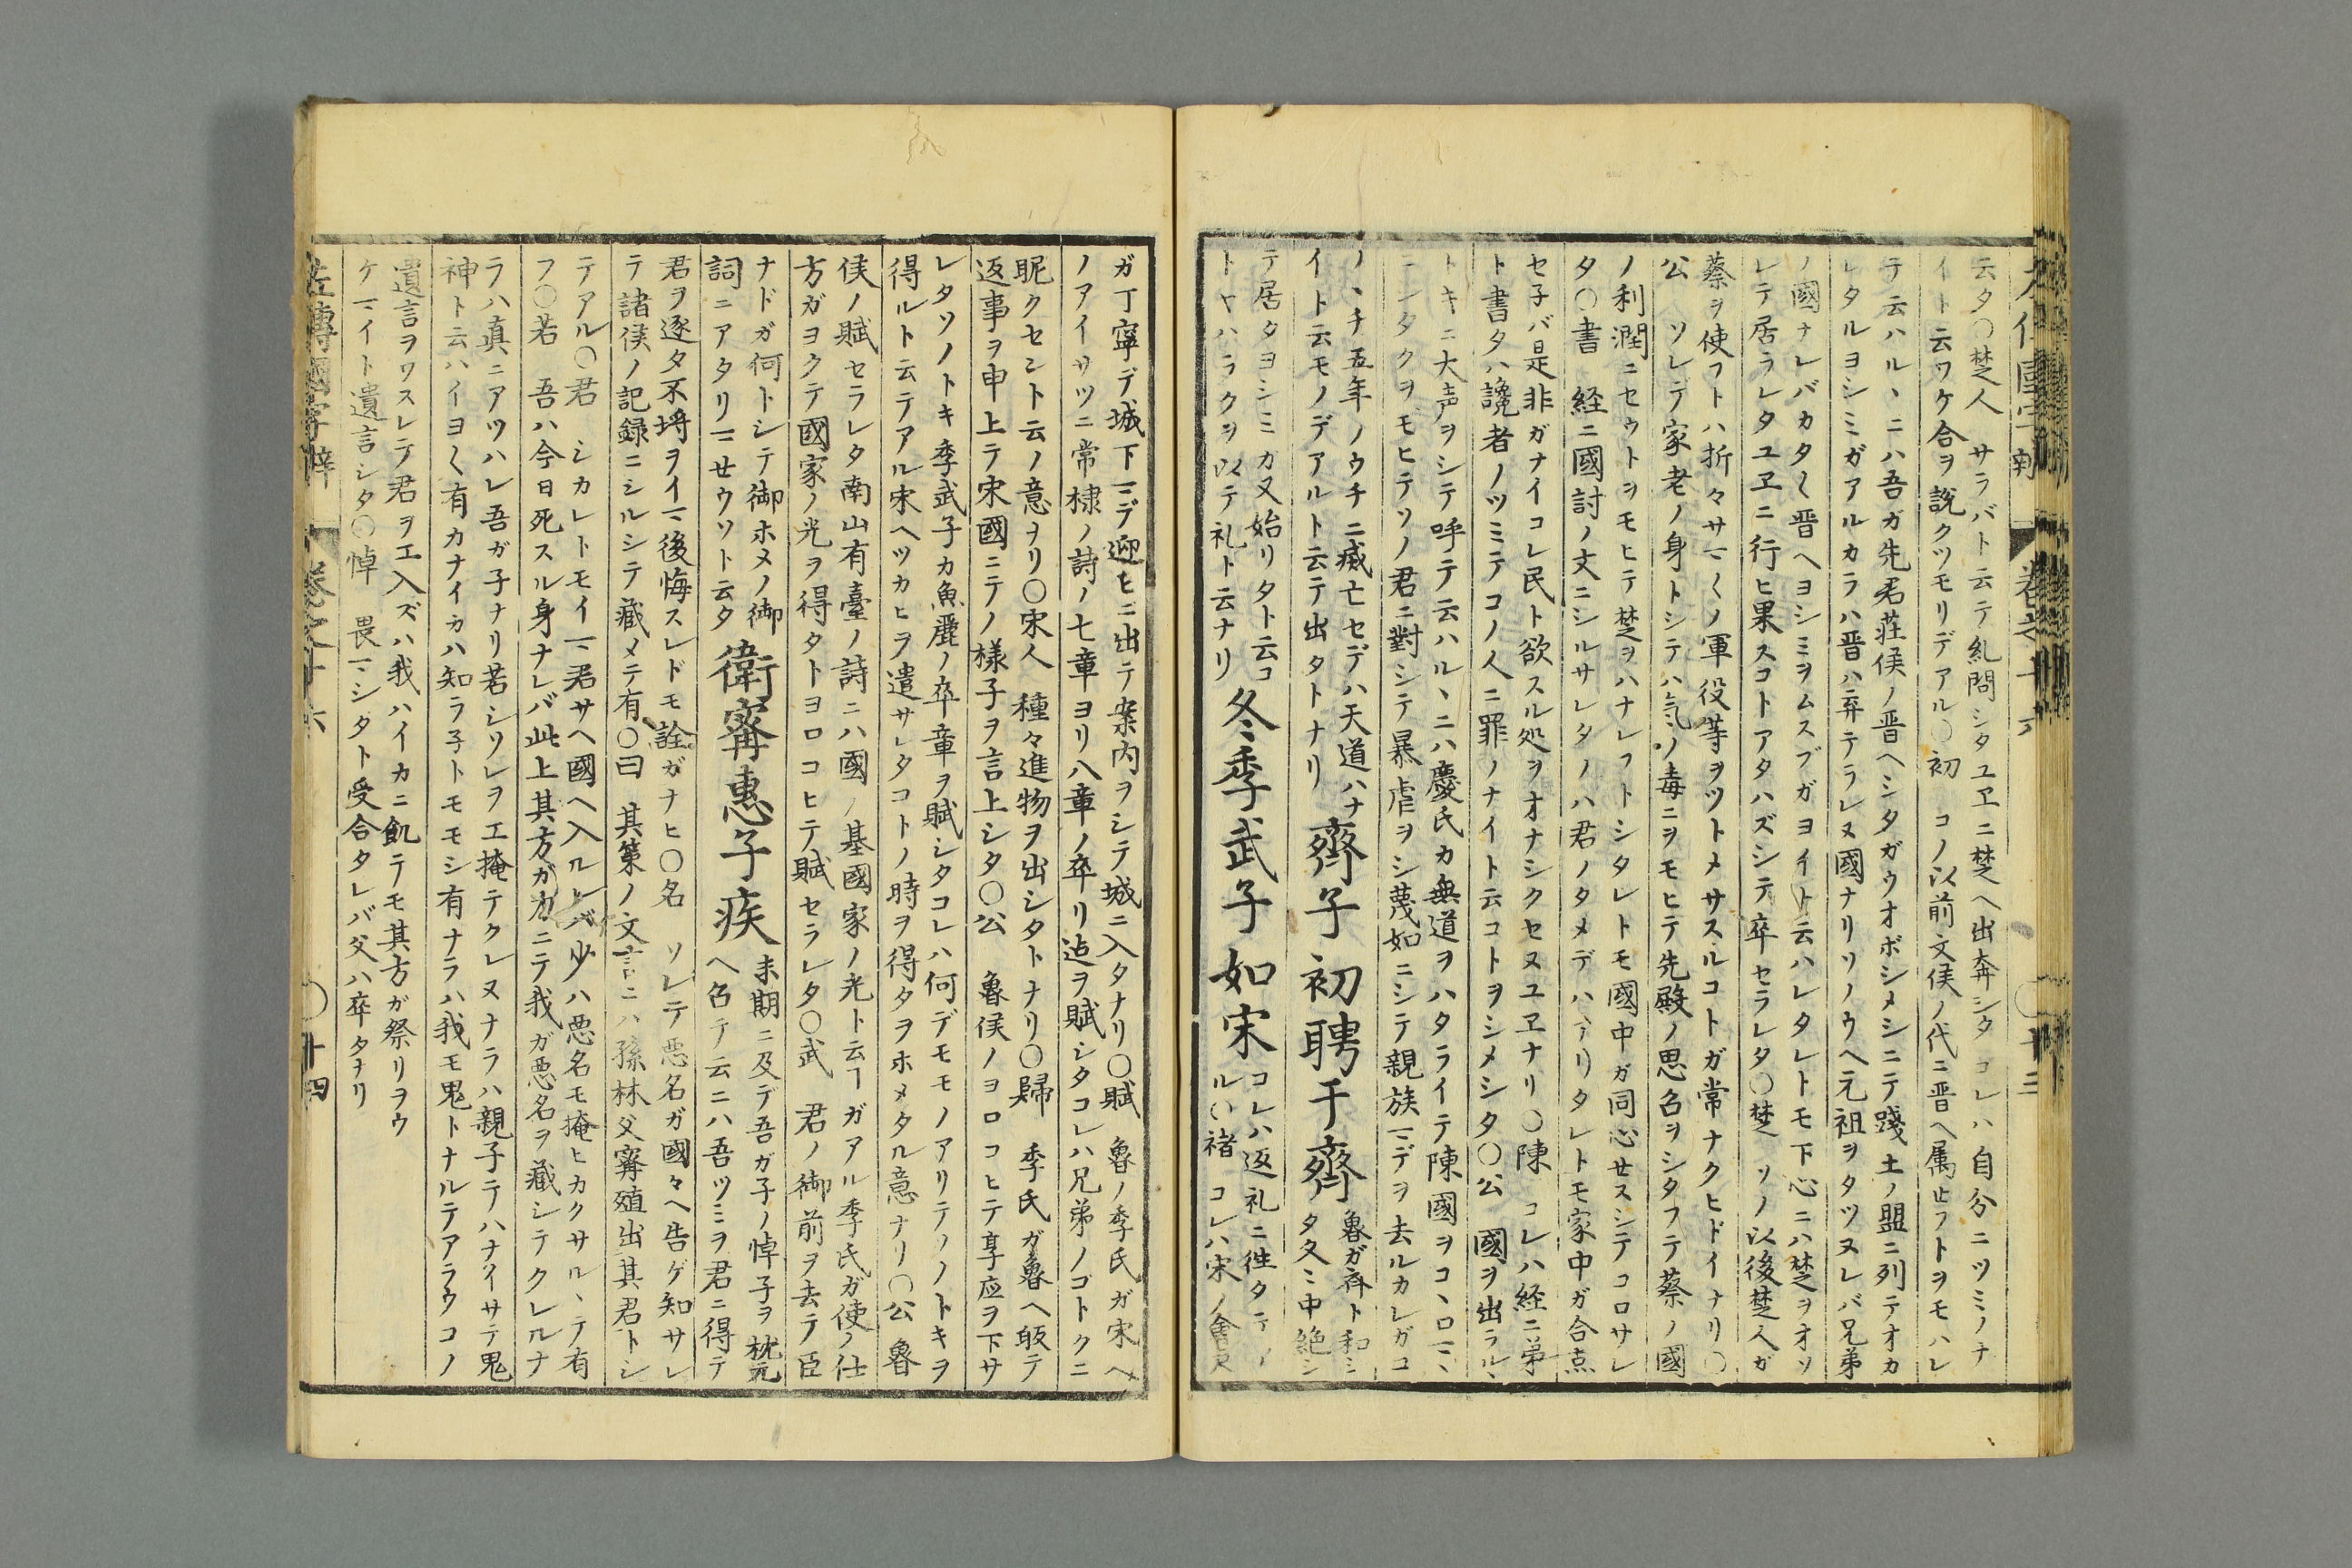 云タ〇楚人　サラバト云テ糺問シタユヱニ楚ヘ出奔シタコレハ自分ニツミノナ
イト云ワケ合ヲ説クツモリデアル〇初　コノ以前文侯ノ代ニ晋ヘ属セフトヲモハレ
テ云ハルヽニハ吾ガ先君荘侯ノ晋ヘシタガウオボシメシニテ踐土ノ盟ニ列テオカ
レタルヨシミガアルカラハ晋ハ弃テラレヌ國ナリソノウヘ元祖ヲタツヌレバ兄弟
ノ國ナレバカタ〱晋ヘヨシミヲムスブガヨイト云ハレタレトモ下心ニハ楚ヲオソ
レテ居ラレタユヱニ行ヒ果スコトアタハズシテ卒セラレタ〇楚　ソノ以後楚人ガ
蔡ヲ使フトハ折々サマ〱ノ軍役等ヲツトメサスルコトガ常ナクヒドイナリ〇
公　ソレデ家老ノ身トシテハ氣ノ毒ニヲモヒテ先殿ノ思召ヲシタフテ蔡ノ國
ノ利潤ニセウトヲモヒテ楚ヲハナレフトシタレトモ國中ガ同心セスシテコロサレ
タ〇書　経ニ國討ノ文ニシルサレタノハ君ノタメデハアリタレトモ家中ガ合点
セ子バ是非ガナイコレ民ト欲スル処ヲオナシクセヌユヱナリ〇陳　コレハ経ニ弟
ト書タハ讒者ノツミテコノ人ニ罪ノナイト云コトヲシメシタ〇公　國ヲ出ラルヽ
トキニ大声ヲシテ呼テ云ハルヽニハ慶氏カ無道ヲハタライテ陳國ヲコヽロマヽ
ニシタクヲモヒテソノ君ニ對シテ暴虐ヲシ蔑如ニシテ親族マデヲ去ルカレガコ
ノヽチ五年ノウチニ㓕亡セデハ天道ハナ
イト云モノデアルト云テ出タトナリ
齊子初聘于齊
魯ガ斉ト和シ
タ夂ミ中絶シ
テ居タヨシミカ又始リタト云コ
トヤハラクヲ以テ礼ト云ナリ
冬季武子如宋
コレハ返礼ニ徃タテノ
ル〇褚　コレハ宋ノ會尺
ガ丁寧デ城下マデ迎ヒニ出テ案内ヲシテ城ニ入タナリ〇賦　魯ノ季氏ガ宋ヘ
ノアイサツニ常棣ノ詩ノ七章ヨリ八章ノ卒リ迠ヲ賦シタコレハ兄弟ノゴトクニ
昵クセント云ノ意ヲリ〇宋人　種々進物ヲ出シタトナリ〇歸　季氏ガ魯ヘ皈テ
返事ヲ申上テ宋國ニテノ様子ヲ言上シタ〇公　魯侯ノヨロコヒテ享应ヲ下サ
レタソノトキ季武子カ魚麗ノ卒章ヲ賦シタコレハ何デモモノアリテソノトキヲ
得ルト云テアル宋ヘツカヒヲ遣サレタコトノ時ヲ得タヲホメタル意ナリ〇公　魯
侯ノ賦セラレタ南山有臺ノ詩ニハ國ノ基國家ノ光ト云ヿガアル季氏ガ使ノ仕
方ガヨクテ國家ノ光ヲ得タトヨロコヒテ賦セラレタ〇武　君ノ御前ヲ去テ臣
ナドガ何トシテ御ホメノ御
詞ニアタリマセウソト云タ
衛甯惠子疾
末期ニ及デ吾ガ子ノ悼子ヲ枕元
ヘ召テ云ニハ吾ツミヲ君ニ得テ
君ヲ逐タ不埒ヲイマ後悔スレドモ詮ガナヒ〇名　ソレテ悪名ガ國々ヘ告ゲ知サレ
テ諸侯ノ記録ニシルシテ藏メテ有〇曰　其策ノ文言ニハ孫林父甯殖出其君トシ
テアル〇君　シカレトモイマ君サヘ國ヘ入ルレバ少ハ悪名モ掩ヒカクサルヽテ有
フ〇若　吾ハ今日死スル身ナレバ此上其方ガ力ニテ我ガ悪名ヲ藏シテクレルナ
ラハ真ニアツハレ吾ガ子ナリ若シソレヲエ掩テクレヌナラハ親子テハナイサテ鬼
神ト云ハイヨ〱有カナイカハ知ラ子トモモシ有ナラハ我モ鬼トナルテアラウコノ
遺言ヲワスレテ君ヲエ入ズハ我ハイカニ飢テモ其方ガ祭リヲウ
ケマイト遺言シタ〇悼　畏マシタト受合タレバ父ハ卒タナリ
左傳國字辯　巻之十六　〇十四